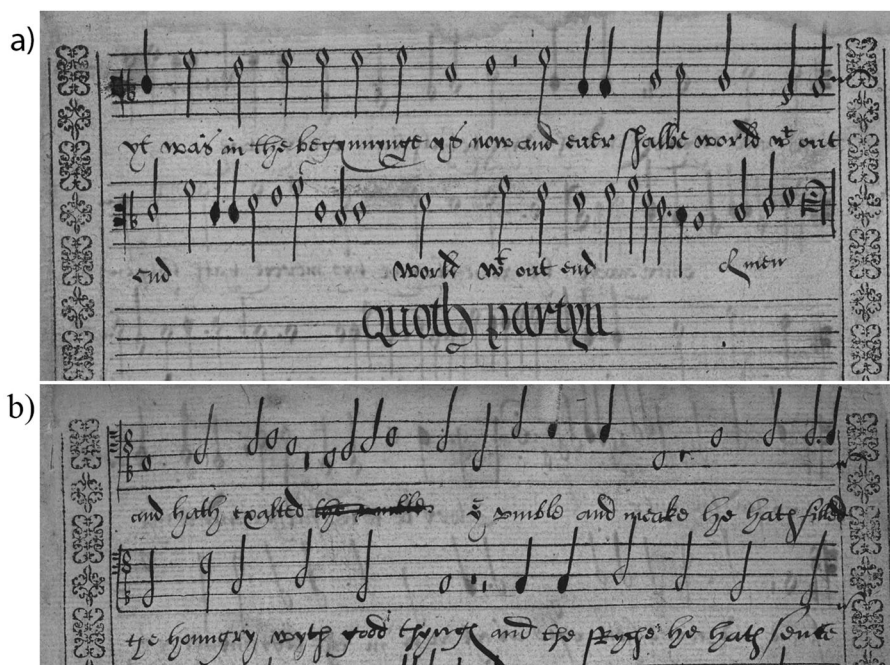 a)
yt was in the begynnynge ys now and ever shalbe world wt out
end world wt out end Amen
quoth partyn
b)
and hath exalted the umble ye umble and meake he hath filled
the houngry wyth good thyngs and the Ryche he hath sente